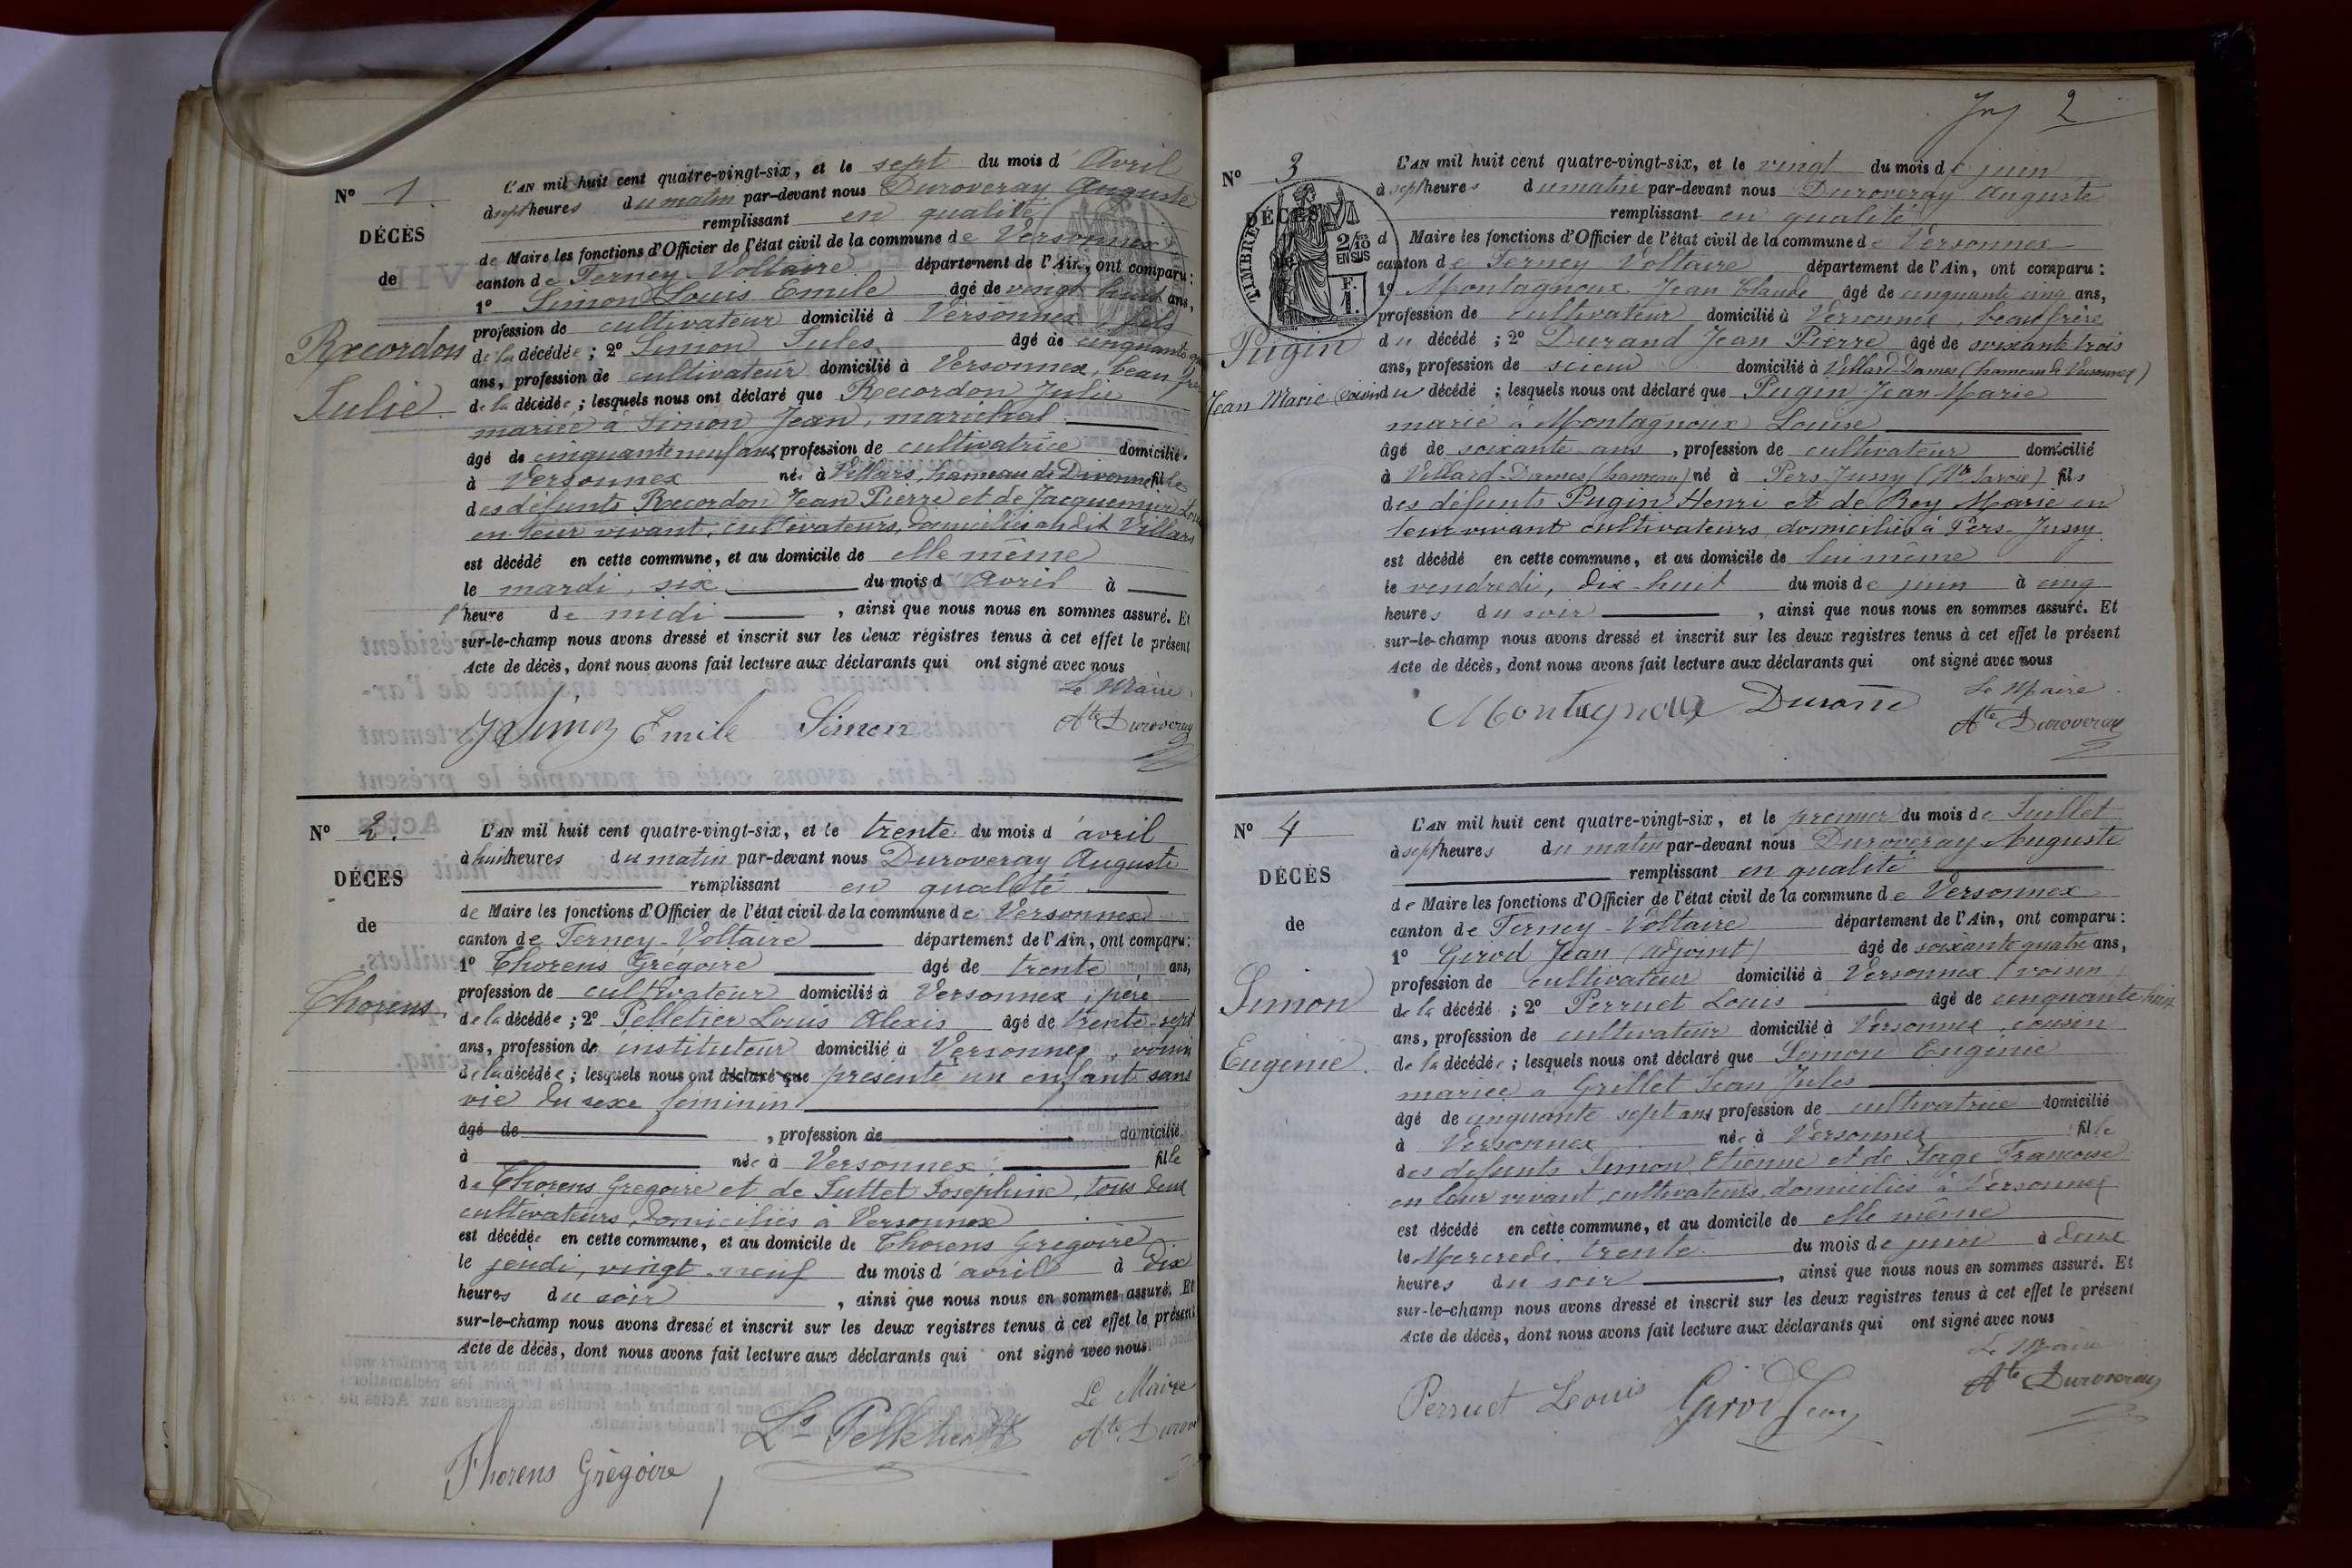 N° 1.
DÉCÈS
de
Recordon
Julie
L'AN mil huit cent quatre-vingt-six, et le sept du mois d'Avril
à sept heures du matin par-devant nous Duroveray Auguste
remplissant en qualité
de Maire les fonctions d'Officier de l'état civil de la commune de Versonnex
canton de Ferney-Voltaire département de l'Ain, ont comparu :
1° Simon Louis Emile âgé de vingt huit ans,
profession de cultivateur domicilié à Versonnex, fils
de la décédée ; 2° Simon Jules âgé de cinquante
ans, profession de cultivateur domicilié à Versonnex, beau frère
de la décédée ; lesquels nous ont déclaré que Recordon Julie
mariée à Simon Jean, maréchal
âgé de cinquante neuf ans, profession de cultivatrice domicilié
à Versonnex née à Villars, hameau de Divonne fille
des défunts Recordon Jean Pierre et de Jacquemier
en leur vivant, cultivateurs, domiciliés au dit Villars
est décédé en cette commune, et au domicile de elle même
le mardi, six du mois d'Avril à
l'heure de midi, ainsi que nous nous en sommes assuré. Et
sur-le-champ nous avons dressé et inscrit sur les deux régistres tenus à cet effet le présent
Acte de décès, dont nous avons fait lecture aux déclarants qui ont signé avec nous
Le Maire
J Simon Emile Simon Ate Duroveray
N° 2.
DÉCÈS
de
Thorens
L'AN mil huit cent quatre-vingt-six, et le trente du mois d'avril
à huit heures du matin par-devant nous Duroveray Auguste
remplissant en qualité
de Maire les fonctions d'Officier de l'état civil de la commune de Versonnex
canton de Ferney-Voltaire département de l'Ain, ont comparu :
1° Thorens Grégoire âgé de trente ans,
profession de cultivateur domicilié à Versonnex, père
de la décédée ; 2° Pelletier Louis Alexis âgé de trente-sept
ans, profession de instituteur domicilié à Versonnex, voisin
de la décédée ; lesquels nous ont déclaré que présenté un enfant sans
vie du sexe féminin
âgé de , profession de domicilié
à née à Versonnex fille
de Thorens Grégoire et de Juttet Joséphine, tous deux
cultivateurs, domiciliés à Versonnex
est décédée en cette commune, et au domicile de Thorens Grégoire
le jeudi, vingt-neuf du mois d'avril à dix
heures du soir, ainsi que nous nous en sommes assuré. Et
sur-le-champ nous avons dressé et inscrit sur les deux registres tenus à cet effet le présent
Acte de décès, dont nous avons fait lecture aux déclarants qui ont signé avec nous
Le Maire
Ls Pelletier Ate Durov
Thorens Grégoire
2
N° 3
DÉCÈS
TIMBRE
2/10 EN SUS
F. 1.
Pugin
Jean Marie
L'AN mil huit cent quatre-vingt-six, et le vingt du mois de juin
à sept heures du matin par-devant nous Duroveray Auguste
remplissant en qualité
d Maire les fonctions d'Officier de l'état civil de la commune de Versonnex
canton de Ferney Voltaire département de l'Ain, ont comparu :
1° Montagnoux Jean Claude âgé de cinquante cinq ans,
profession de cultivateur domicilié à Versonnex, beau frère
du décédé ; 2° Durand Jean Pierre âgé de soixante trois
ans, profession de scieur domicilié à Villard-Dames (hameau de Versonnex)
(voisin) du décédé ; lesquels nous ont déclaré que Pugin Jean-Marie
marié à Montagnoux Louise
âgé de soixante ans, profession de cultivateur domicilié
à Villard-Dames (hameau) né à Pers-Jussy (Hte Savoie) fils
des défunts Pugin Henri et de Rey Marie en
leur vivant cultivateurs, domiciliés à Pers-Jussy
est décédé en cette commune, et au domicile de lui même
le vendredi, dix-huit du mois de juin à cinq
heures du soir, ainsi que nous nous en sommes assuré. Et
sur-le-champ nous avons dressé et inscrit sur les deux registres tenus à cet effet le présent
Acte de décès, dont nous avons fait lecture aux déclarants qui ont signé avec nous
Le Maire
Montagnoux Durand Ate Duroveray
N° 4
DÉCÈS
de
Simon
Eugénie.
L'AN mil huit cent quatre-vingt-six, et le premier du mois de Juillet
à sept heures du matin par-devant nous Duroveray Auguste
remplissant en qualité
de Maire les fonctions d'Officier de l'état civil de la commune de Versonnex
canton de Ferney-Voltaire département de l'Ain, ont comparu :
1° Girod Jean (adjoint) âgé de soixante quatre ans,
profession de cultivateur domicilié à Versonnex (voisin)
de la décédé ; 2° Perruet Louis âgé de cinquante huit
ans, profession de cultivateur domicilié à Versonnex, cousin
de la décédée ; lesquels nous ont déclaré que Simon Eugénie
mariée à Grillet Jean Jules
âgé de cinquante sept ans, profession de cultivatrice domicilié
à Versonnex née à Versonnex fille
des défunts Simon Etienne et de Sage Françoise
en leur vivant, cultivateurs, domiciliés à Versonnex
est décédé en cette commune, et au domicile de elle même
le Mercredi, trente du mois de juin à deux
heures du soir, ainsi que nous nous en sommes assuré. Et
sur-le-champ nous avons dressé et inscrit sur les deux registres tenus à cet effet le présent
Acte de décès, dont nous avons fait lecture aux déclarants qui ont signé avec nous
Le Maire
Perruet Louis Girod Jean Ate Duroveray